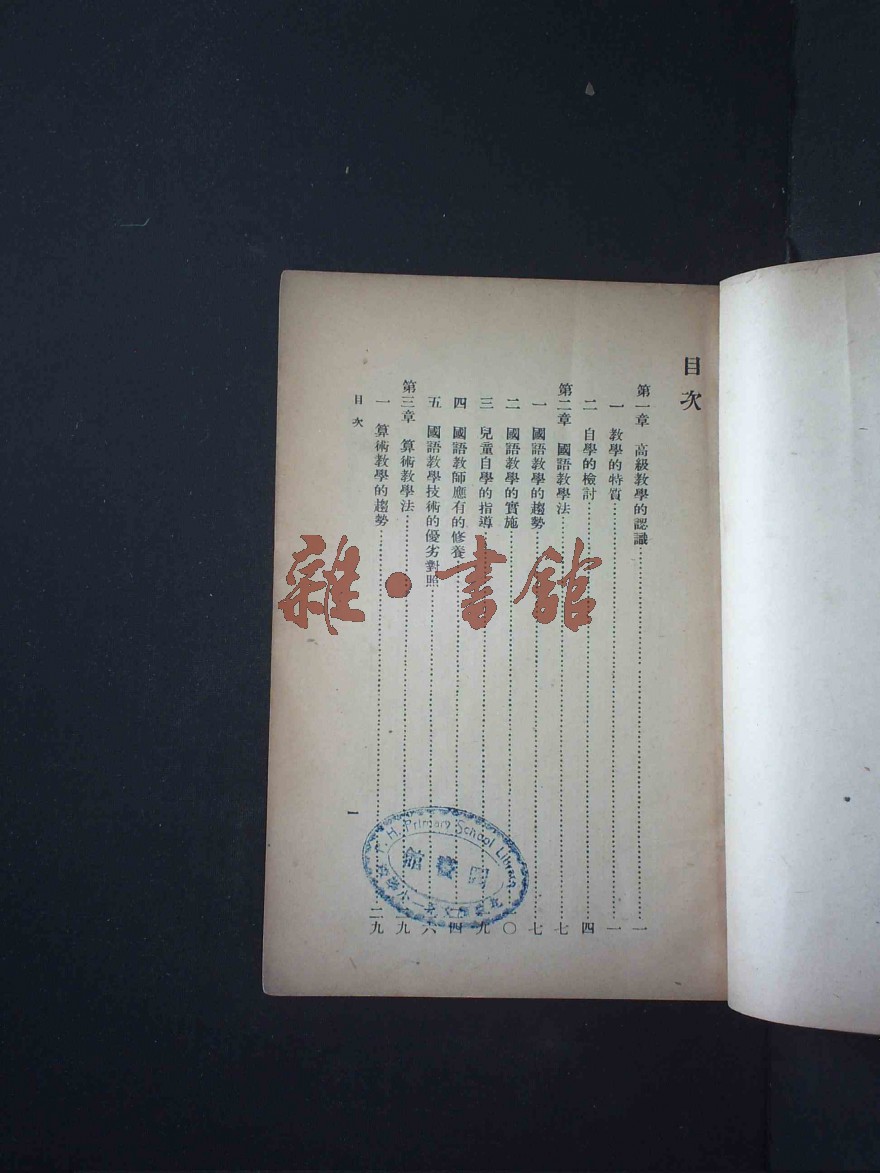 目次
第一章 高級教學的認識……一
一 教學的特質……一
二 自學的檢討……四
第二章 國語教學法……七
一 國語教學的趨勢……七
二 國語教學的實施……一〇
三 兒童自學的指導……九
四 國語教師應有的修養……四
五 國語教學技術的優劣對照……六
第三章 算術教學法……二九
一 算術教學的趨勢……二九
目次
一
雜·書館
H. Primary School Library